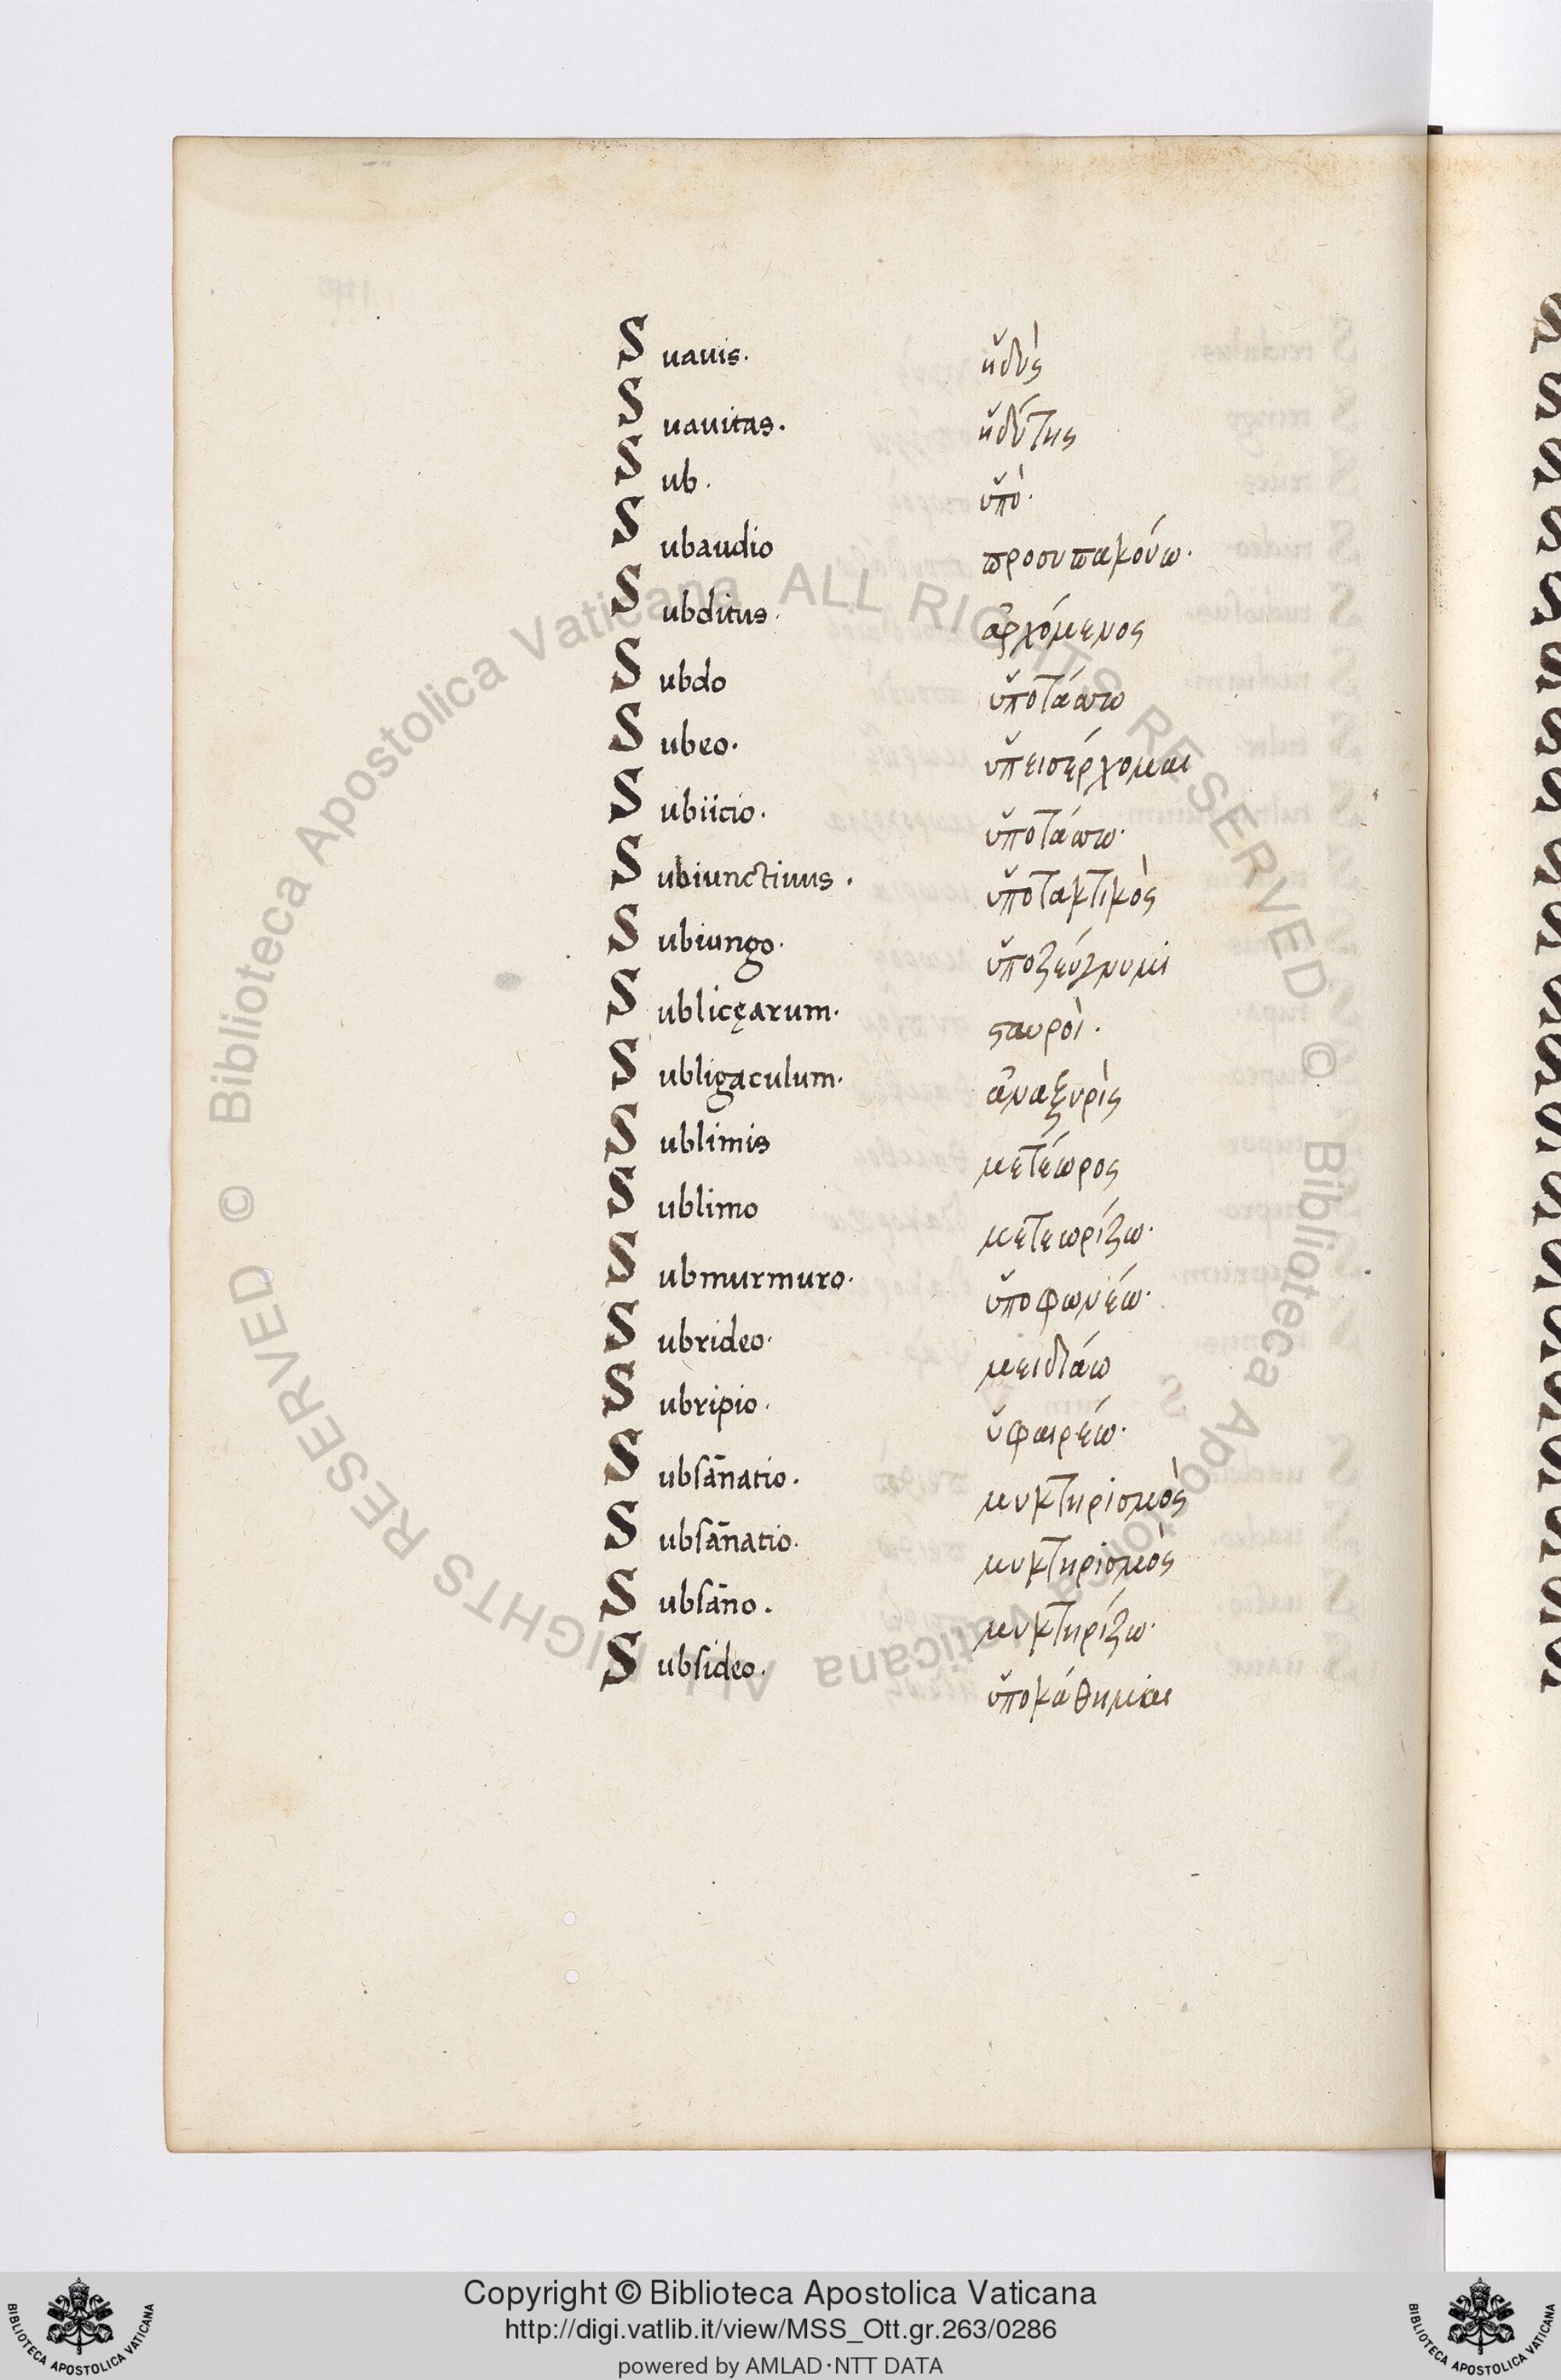 Suauis. ἡδὺς
Suauitas. ἡδύτης
Sub. ὑπὸ.
Subaudio προσυπακούω.
Subditus. ἀρχόμενος
Subdo ὑποτάσσω
Subeo. ὑπεισέρχομαι
Subiicio. ὑποτάσσω.
Subiunctiuus. ὑποτακτικὸς
Subiungo. ὑποζεύγνυμι
Sublicęarum. ςαυροὶ.
Subligaculum. ἀναξυρὶς
Sublimis μετέωρος
Sublimo μετεωρίζω.
Submurmuro. ὑποφωνέω.
Subrideo. μειδιάω
Subripio. ὑφαιρέω.
Subsānatio. μυκτηρισμὸς
Subsānatio. μυκτηρισμὸς
Subsāno. μυκτηρίζω.
Subsideo. ὑποκάθημαι
© Biblioteca Apostolica Vaticana ALL RIGHTS RESERVED © Biblioteca Apostolica Vaticana ALL RIGHTS RESERVED
Copyright © Biblioteca Apostolica Vaticana
http://digi.vatlib.it/view/MSS_Ott.gr.263/0286
powered by AMLAD·NTT DATA
BIBLIOTECA APOSTOLICA VATICANA
BIBLIOTECA APOSTOLICA VATICANA